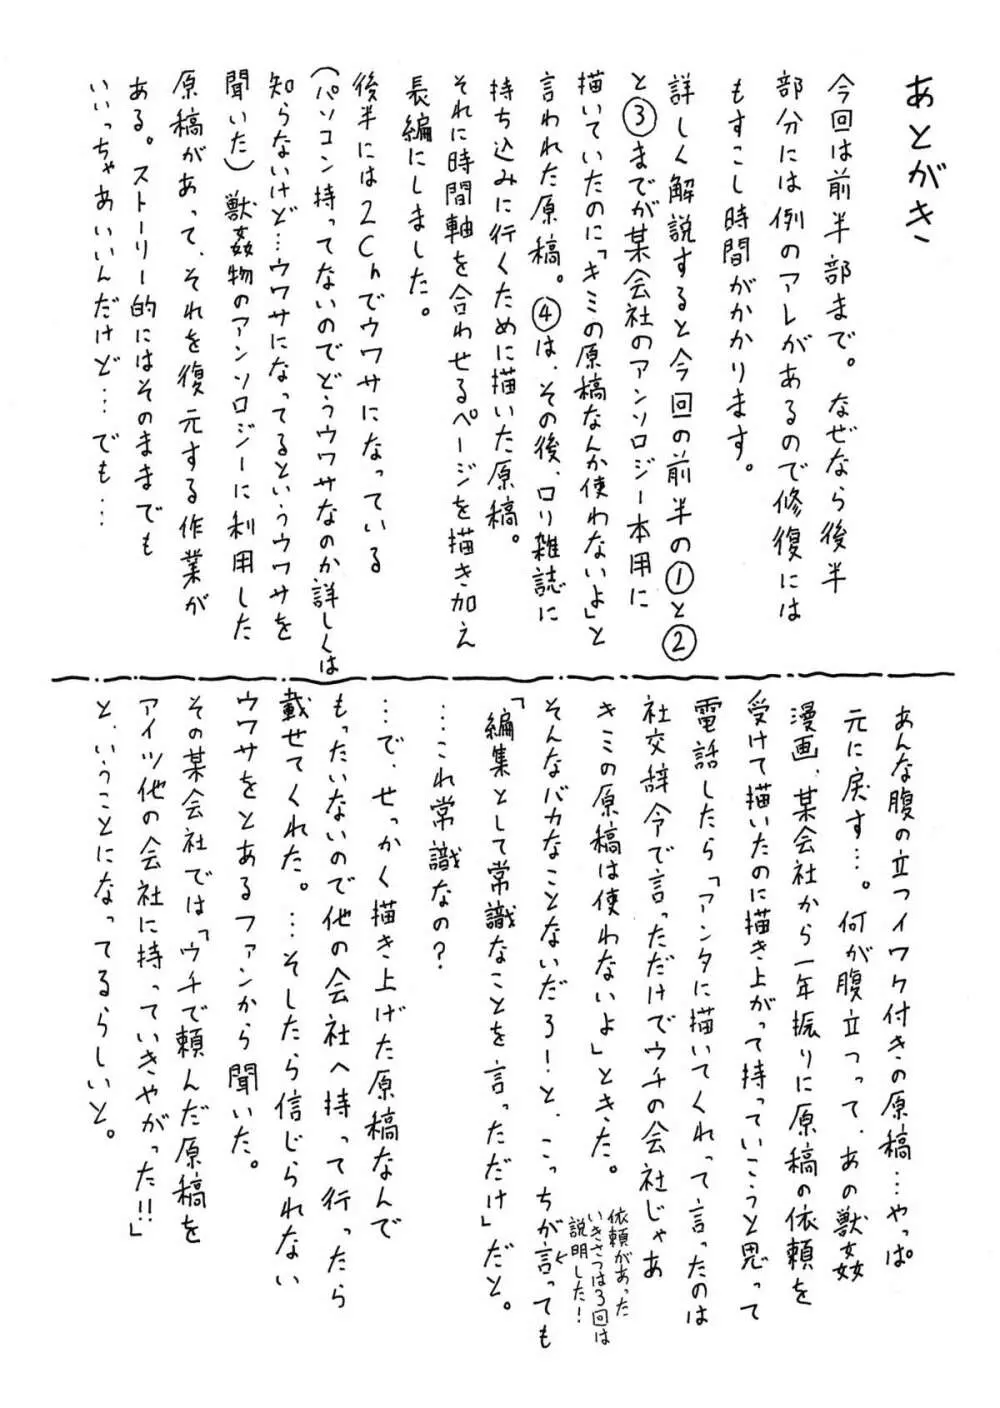 あとがき
今回は前半部まで。なぜなら後半
部分には例のアレがあるので修復には
もすこし時間がかかります。
詳しく解説すると今回の前半の①と②
と③までが某会社のアンソロジー本用に
描いていたのに「キミの原稿なんか使わないよ」と
言われた原稿。④は、その後、ロリ雑誌に
持ち込みに行くために描いた原稿。
それに時間軸を合わせるページを描き加え
長編にしました。
後半には2Chでウワサになっている
(パソコン持ってないのでどうウワサなのか詳しくは
知らないけど…ウワサになってるというウワサを
聞いた)獣姦物のアンソロジーに利用した
原稿があって、それを復元する作業が
ある。ストーリー的にはそのままでも
いいっちゃあいいんだけど…でも…
あんな腹の立つイワク付きの原稿…やっぱ
元に戻す…。何が腹立つって、あの獣姦
漫画、某会社から一年振りに原稿の依頼を
受けて描いたのに描き上がって持っていこうと思って
電話したら「アンタに描いてくれって言ったのは
社交辞令で言っただけでウチの会社じゃあ
キミの原稿は使わないよ」ときた。
そんなバカなことないだろ!と、こっちが言っても
依頼があった
いきさつは3回は
説明した!
「編集として常識なことを言っただけ」だと。
…これ常識なの?
…で、せっかく描き上げた原稿なんで
もったいないので他の会社へ持って行ったら
載せてくれた。…そしたら信じられない
ウワサをとあるファンから聞いた。
その某会社では「ウチで頼んだ原稿を
アイツ他の会社に持っていきやがった!!」
と、いうことになってるらしいと。